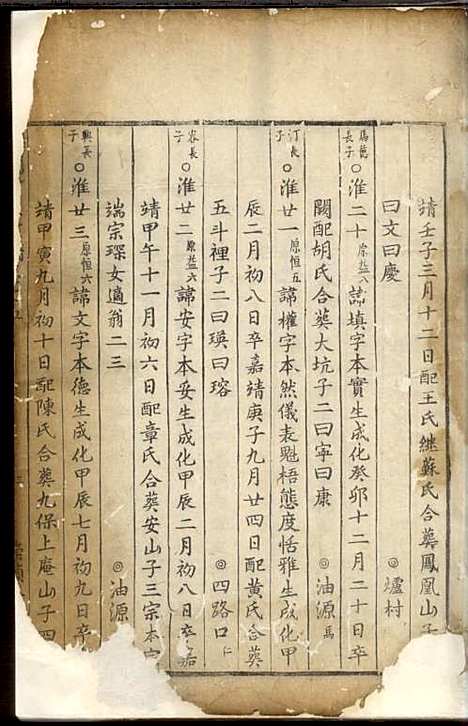 靖壬子三月十二日配王氏継蘇氏合葬鳳凰山子
曰文曰慶 ◎爐村
長子 ○淮二十 原益八 諱填字本實生成化癸卯十二月二十日卒
闕配胡氏合葬大坑子二曰寧曰康 ◎油源
子 ○淮廿一 原恒五 諱權字本然儀表魁梧態度恬雅生成化甲
辰二月初八日卒嘉靖庚子九月廿四日配黄氏合葬
五斗裡子二曰瑛曰瑢 ◎四路口 仁
子 ○淮廿二 原益六 諱安字本妥生成化甲辰二月初八日卒嘉
靖甲午十一月初六日配章氏合葬安山子三宗本宗
端宗琛女適翁二三 ◎油源
興長子 ○淮廿三 原恒六 諱文字本德生成化甲辰七月初九日卒
靖甲寅九月初十日配陳氏合葬九保上庵山子四